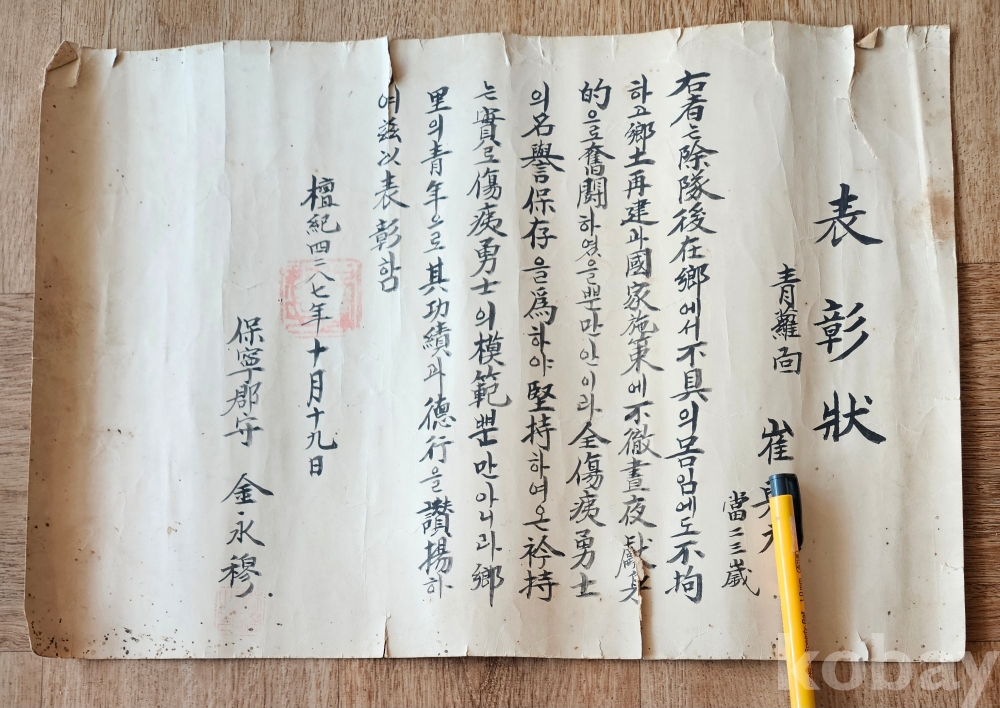 表彰狀
青蘿面
崔
當二三歲
右者는除隊後在鄕에서不具의몸임에도不拘
하고鄕土再建과國家施策에不徹晝夜獻身
的으로奮鬪하였을뿐만안이라全傷痍勇士
의名譽保存을爲하야堅持하여온衿持
는實로傷痍勇士의模範뿐만아니라鄕
里의青年으로其功績과德行을讚揚하
여玆以表彰함
檀紀四二八七年十月十九日
保寧郡守 金永穆
kobay